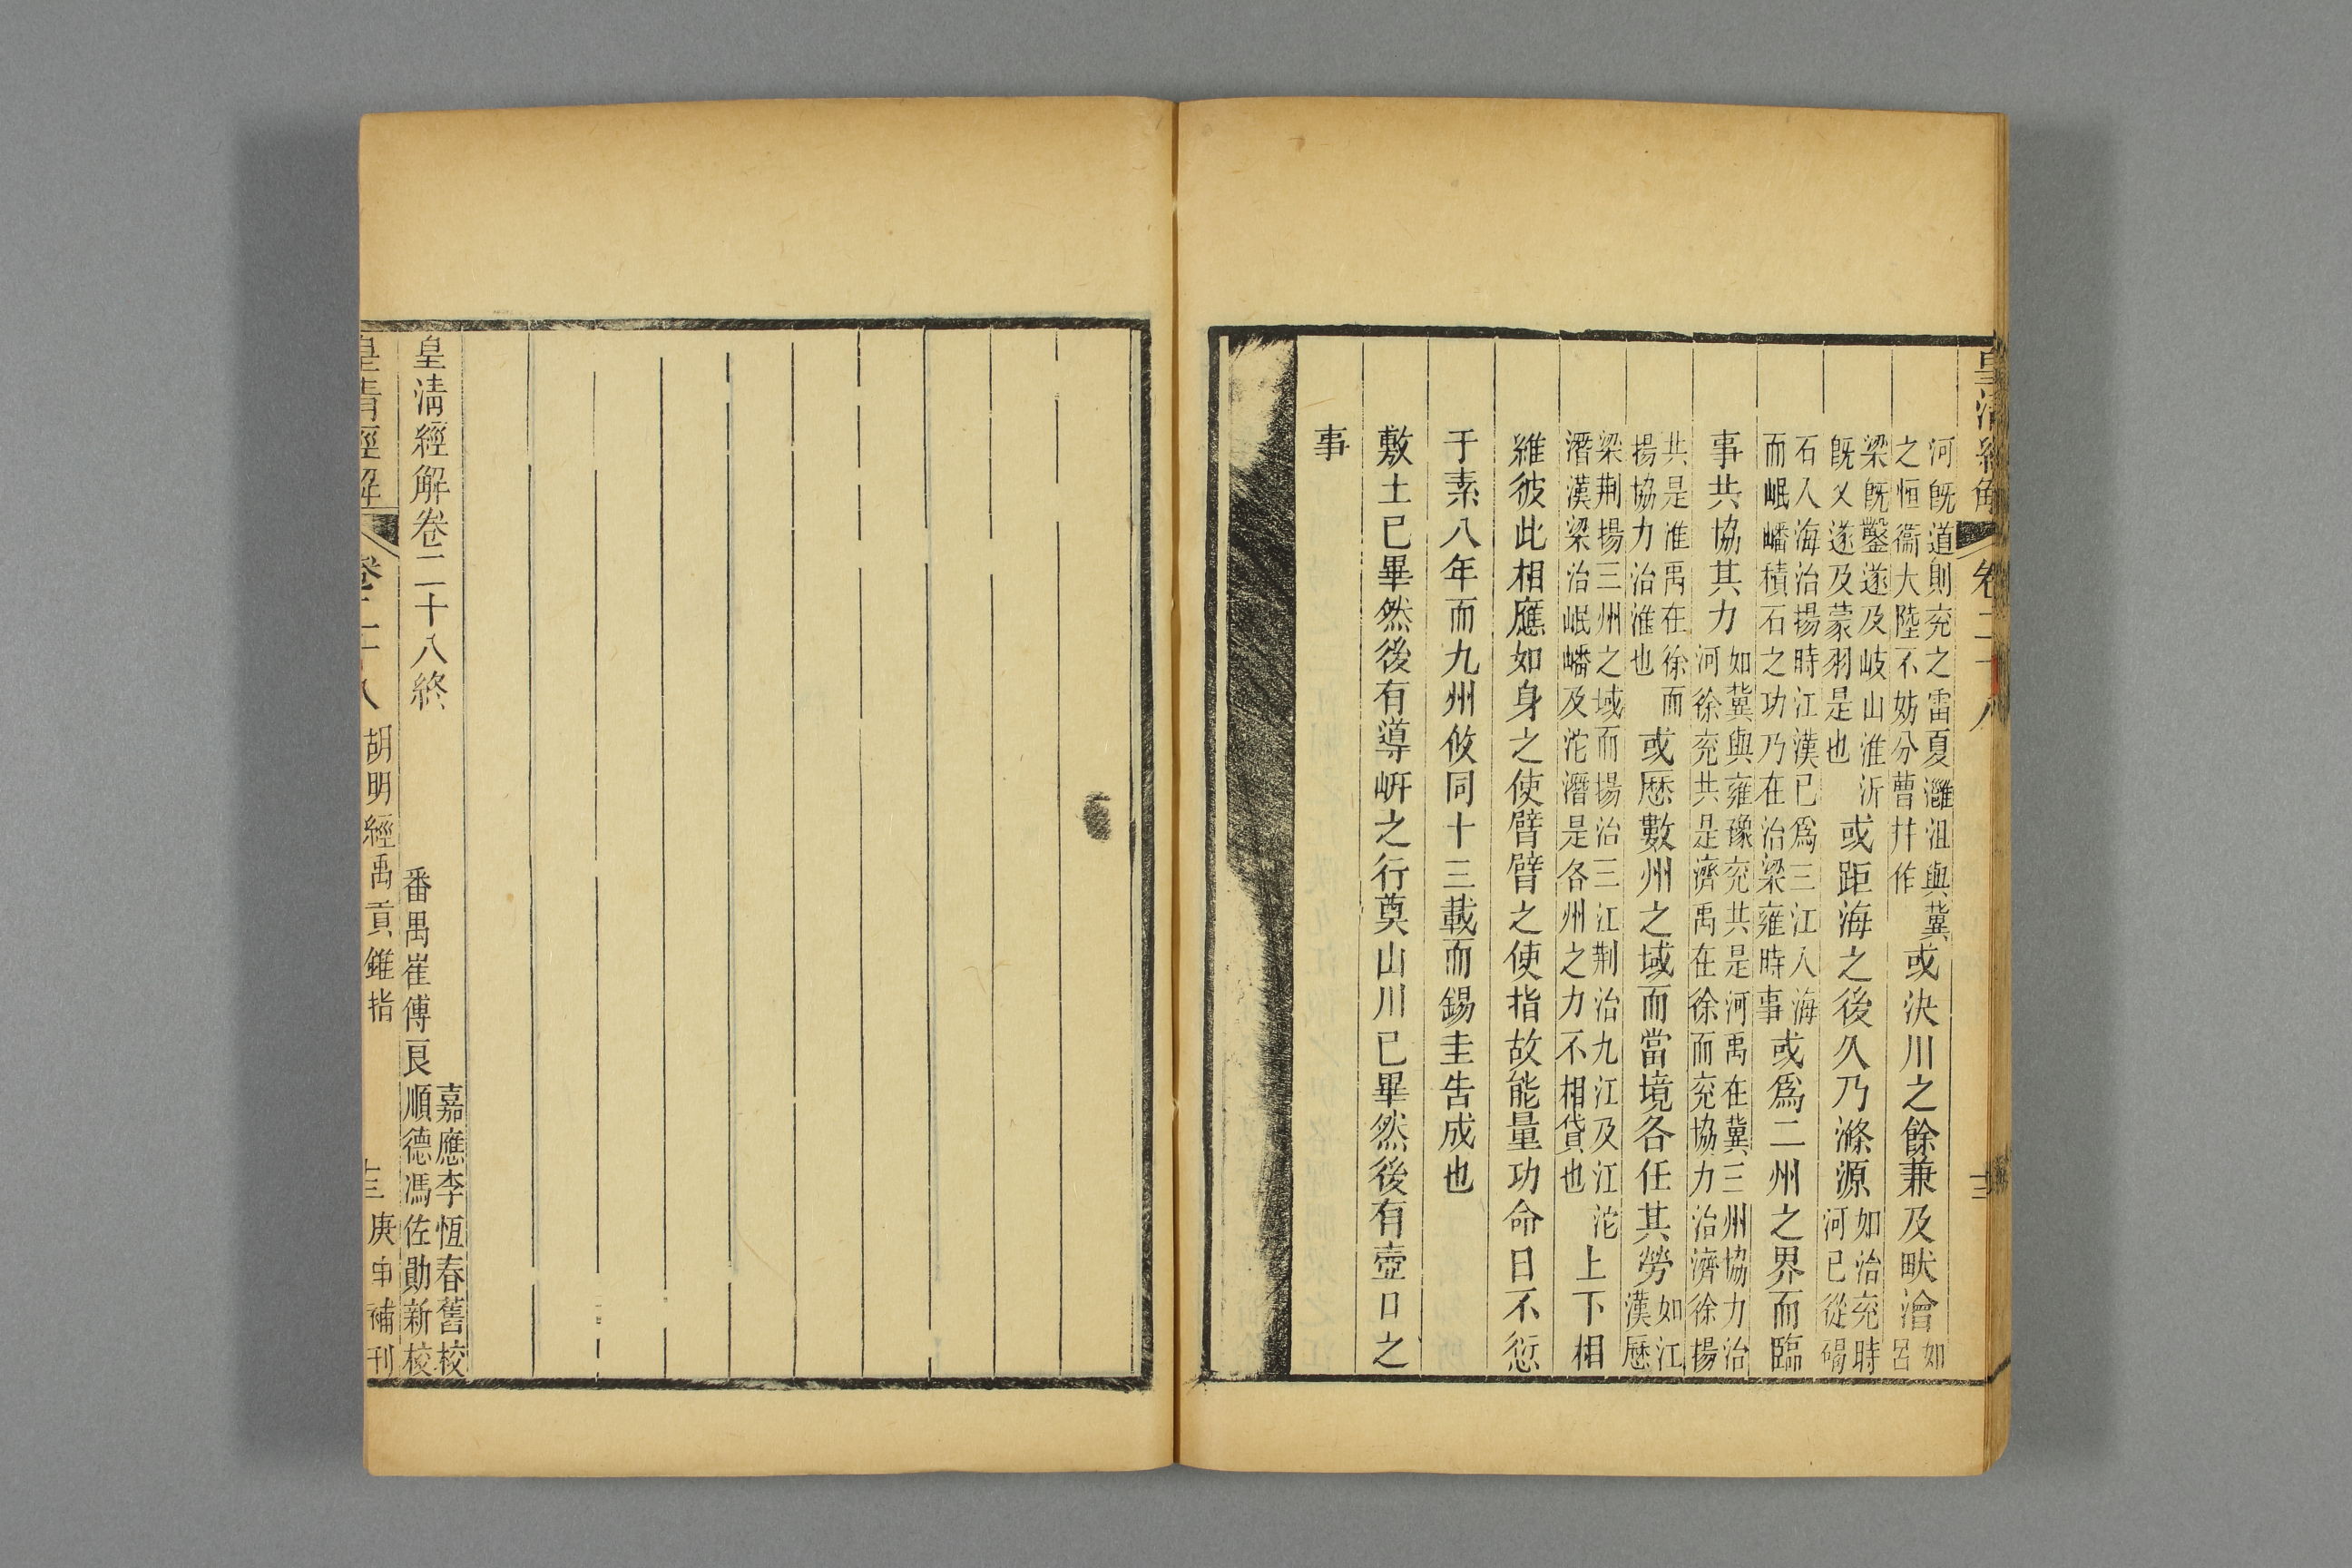 皇清經解 卷二十八 十三
河既道則兗之雷夏灉沮與冀之恒衞大陸不妨分曹并作或決川之餘兼及畎澮如呂
梁既鑿遂及岐山淮沂既乂遂及蒙羽是也或距海之後久乃滌源如治兗時河已從碣
石入海治揚時江漢已爲三江入海而岷嶓積石之功乃在治梁雍時事或爲二州之界而臨
事共協其力如冀與雍豫兗共是河禹在冀三州協力治河徐兗共是濟禹在徐而兗協力治濟徐揚
共是淮禹在徐而揚協力治淮也或歷數州之域而當境各任其勞如江漢歷
梁荆揚三州之域而揚治三江荆治九江及江沱潛漢梁治岷嶓及沱潛是各州之力不相貸也上下相
維彼此相應如身之使臂臂之使指故能量功命日不愆
于素八年而九州攸同十三載而錫圭告成也
敷土已畢然後有導岍之行奠山川已畢然後有壺口之
事
皇清經解卷二十八終
嘉應李恆春舊校
番禺崔傅良順德馮佐勛新校
皇清經解 卷二十八 胡明經禹貢錐指 十三 庚申補刊